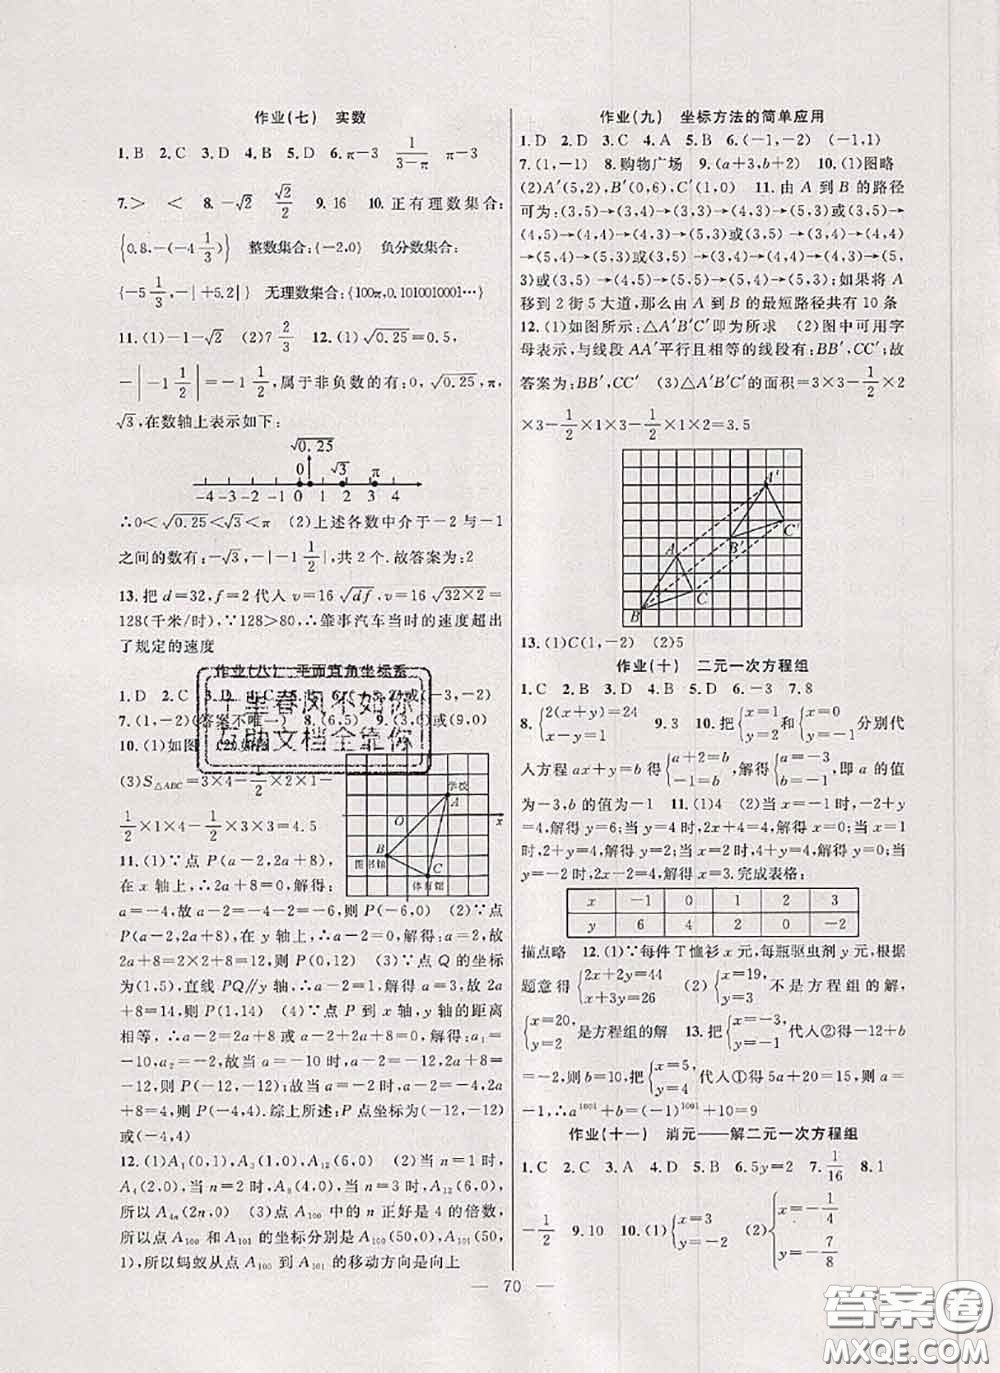 作业(七)　实数
1.B　2.C　3.D　4.B　5.D　6.π－3　1/(3－π)　π－3
7.＞　＜　8.－√2　√2/2　9.16　10.正有理数集合:
{0.8,－(－4 1/3)}　整数集合:{－2,0}　负分数集合:
{－5 1/3,－|＋5.2|}　无理数集合:{100π,0.1010010001…}
11.(1)－1－√2　(2)7 2/3　12.(1)√0.25＝0.5,
－|－1 1/2|＝－1 1/2,属于非负数的有:0,√0.25,π,
√3,在数轴上表示如下:
√0.25
0　√3　π
－4 －3 －2 －1 0 1 2 3 4
∴0＜√0.25＜√3＜π　(2)上述各数中介于－2与－1
之间的数有:－√3,－|－1 1/2|,共2个.故答案为:2
13.把d＝32,f＝2代人v＝16√df,v＝16√32×2＝
128(千米/时),∵128＞80,∴肇事汽车当时的速度超出
了规定的速度
作业(八)　平面直角坐标系
1.D　2.C　3.D　4.C　5.
7.(1,2)(答案不唯一)　8.(6,5)　9.(3,0)或(9,0)
10.(1)如图　(2)如图
(3)S△ABC＝3×4－1/2×2×1－
1/2×1×4－1/2×3×3＝4.5
学校
A
O　x
B
图书馆
C
体育馆
11.(1)∵点P(a－2,2a＋8),
在x轴上,∴2a＋8＝0,解得:
a＝－4,故a－2＝－4－2＝－6,则P(－6,0)　(2)∵点
P(a－2,2a＋8),在y轴上,∴a－2＝0,解得:a＝2,故
2a＋8＝2×2＋8＝12,则P(0,12)　(3)∵点Q的坐标
为(1,5),直线PQ∥y轴,∴a－2＝1,解得:a＝3,故
2a＋8＝14,则P(1,14)　(4)∵点P到x轴,y轴的距离
相等,∴a－2＝2a＋8或a－2＋2a＋8＝0,解得:a₁＝
－10,a₂＝－2,故当a＝－10时,则a－2＝－12,2a＋8＝
－12,则P(－12,－12);故当a＝－2时,则a－2＝－4,2a＋8
＝4,则P(－4,4).综上所述:P点坐标为(－12,－12)
或(－4,4)
12.(1)A₄(0,1),A₈(1,0),A₁₂(6,0)　(2)当n＝1时,
A₄(2,0),当n＝2时,A₈(4,0),当n＝3时,A₁₂(6,0),
所以A₄ₙ(2n,0)　(3)点Aₙ中的n正好是4的倍数,
所以点A₁₀₀和A₁₀₁的坐标分别是A₁₀₀(50,0),A₁₀₁(50,
1),所以蚂蚁从点A₁₀₀到A₁₀₁的移动方向是向上
作业(九)　坐标方法的简单应用
1.D　2.D　3.C　4.A　5.A　6.(－1,－2)　(－1,1)
7.(1,－1)　8.购物广场　9.(a＋3,b＋2)　10.(1)图略
(2)A′(5,2),B′(0,6),C′(1,0)　11.由A到B的路径
可为:(3,5)→(3,4)→(3,3)→(4,3)→(5,3)或(3,5)→
(4,5)→(4,4)→(4,3)→(5,3)或(3,5)→(3,4)→(4,4)
→(5,4)→(5,3)或(3,5)→(3,4)→(4,4)→(4,3)→(5,
3)或(3,5)→(4,5)→(5,5)→(5,4)→(5,3);如果将A
移到2街5大道,那么由A到B的最短路径共有10条
12.(1)如图所示:△A′B′C′即为所求　(2)图中可用字
母表示,与线段AA′平行且相等的线段有:BB′,CC′;故
答案为:BB′,CC′　(3)△A′B′C′的面积＝3×3－1/2×2
×3－1/2×1×3－1/2×1×2＝3.5
A′
C′
B′
A
C
B
13.(1)C(1,－2)　(2)5
作业(十)　二元一次方程组
1.C　2.A　3.B　4.D　5.D　6.－3　7.8
8.{2(x＋y)＝24 x－y＝6　9.3　10.把{x＝2 y＝1和{x＝－1 y＝－1分别代
人方程ax＋y＝b得{a＋2＝b －a－1＝b,解得{a＝－3 b＝－1,即a的值
为－3,b的值为－1　11.(1)4　(2)当x＝－1时,－2＋y
＝4,解得y＝6;当y＝4时,2x＋4＝4,解得x＝0;当x＝1时,
2＋y＝4,解得y＝2;当x＝2时,4＋y＝4,解得y＝0;当
y＝－2时,2x－2＝4,解得x＝3.完成表格:
x　－1　0　1　2　3
y　6　4　2　0　－2
描点略　12.(1)∵每件T恤衫x元,每瓶驱虫剂y元,根据
题意得{2x＋2y＝44 x＋3y＝26　(2){x＝19, y＝3不是方程组的解,
{x＝20, y＝2是方程组的解　13.把{x＝－3, y＝－1代人②得－12＋b
＝－2,则b＝10,把{x＝5 y＝4代人①得5a＋20＝15,则a＝
－1,∴a¹⁰⁰¹＋b＝(－1)¹⁰⁰¹＋10＝9
作业(十一)　消元——解二元一次方程组
1.C　2.C　3.A　4.D　5.B　6.5y＝2　7.1/16　8.1
－1/2　9.10　10.(1){x＝3 y＝－2　(2){x＝－1/4 y＝－7/8
— 70 —
十里春风不如你
互助文档全靠你
答案圈
MXQE.COM